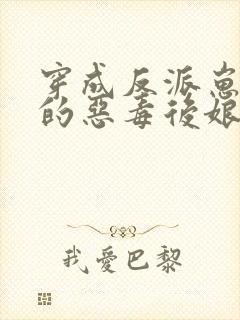 穿成反派崽
的惡毒後娘
我愛巴黎